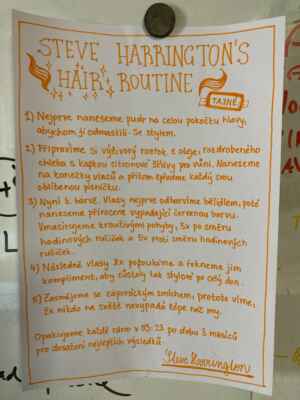 STEVE HARRINGTON'S
HAIR ROUTINE
TAJNÉ
1) Nejprve naneseme pudr na celou pokožku hlavy,
abychom ji odmastili se stylem.
2) Připravíme si výživný roztok z oleje, rozdrobeného
chleba s kapkou citrónové šťávy pro vůni. Naneseme
na konečky vlasů a přitom zpíváme každý svou
oblíbenou písničku.
3) Nyní k barvě. Vlasy nejprve odbarvíme bělidlem, poté
naneseme přirozeně vypadající červenou barvu.
Vmasírujeme krouživými pohyby, 5x po směru
hodinových ručiček a 5x proti směru hodinových
ručiček.
4) Následně vlasy 2x pofoukáme a řekneme jim
kompliment, aby zůstaly tak stylové po celý den.
5) Zasmějeme se záporáckým smíchem, protože víme,
že nikdo na světě nevypadá lépe než my.
Opakujeme každé ráno v 05:23 po dobu 3 měsíců
pro dosažení nejlepších výsledků.
Steve Harrington